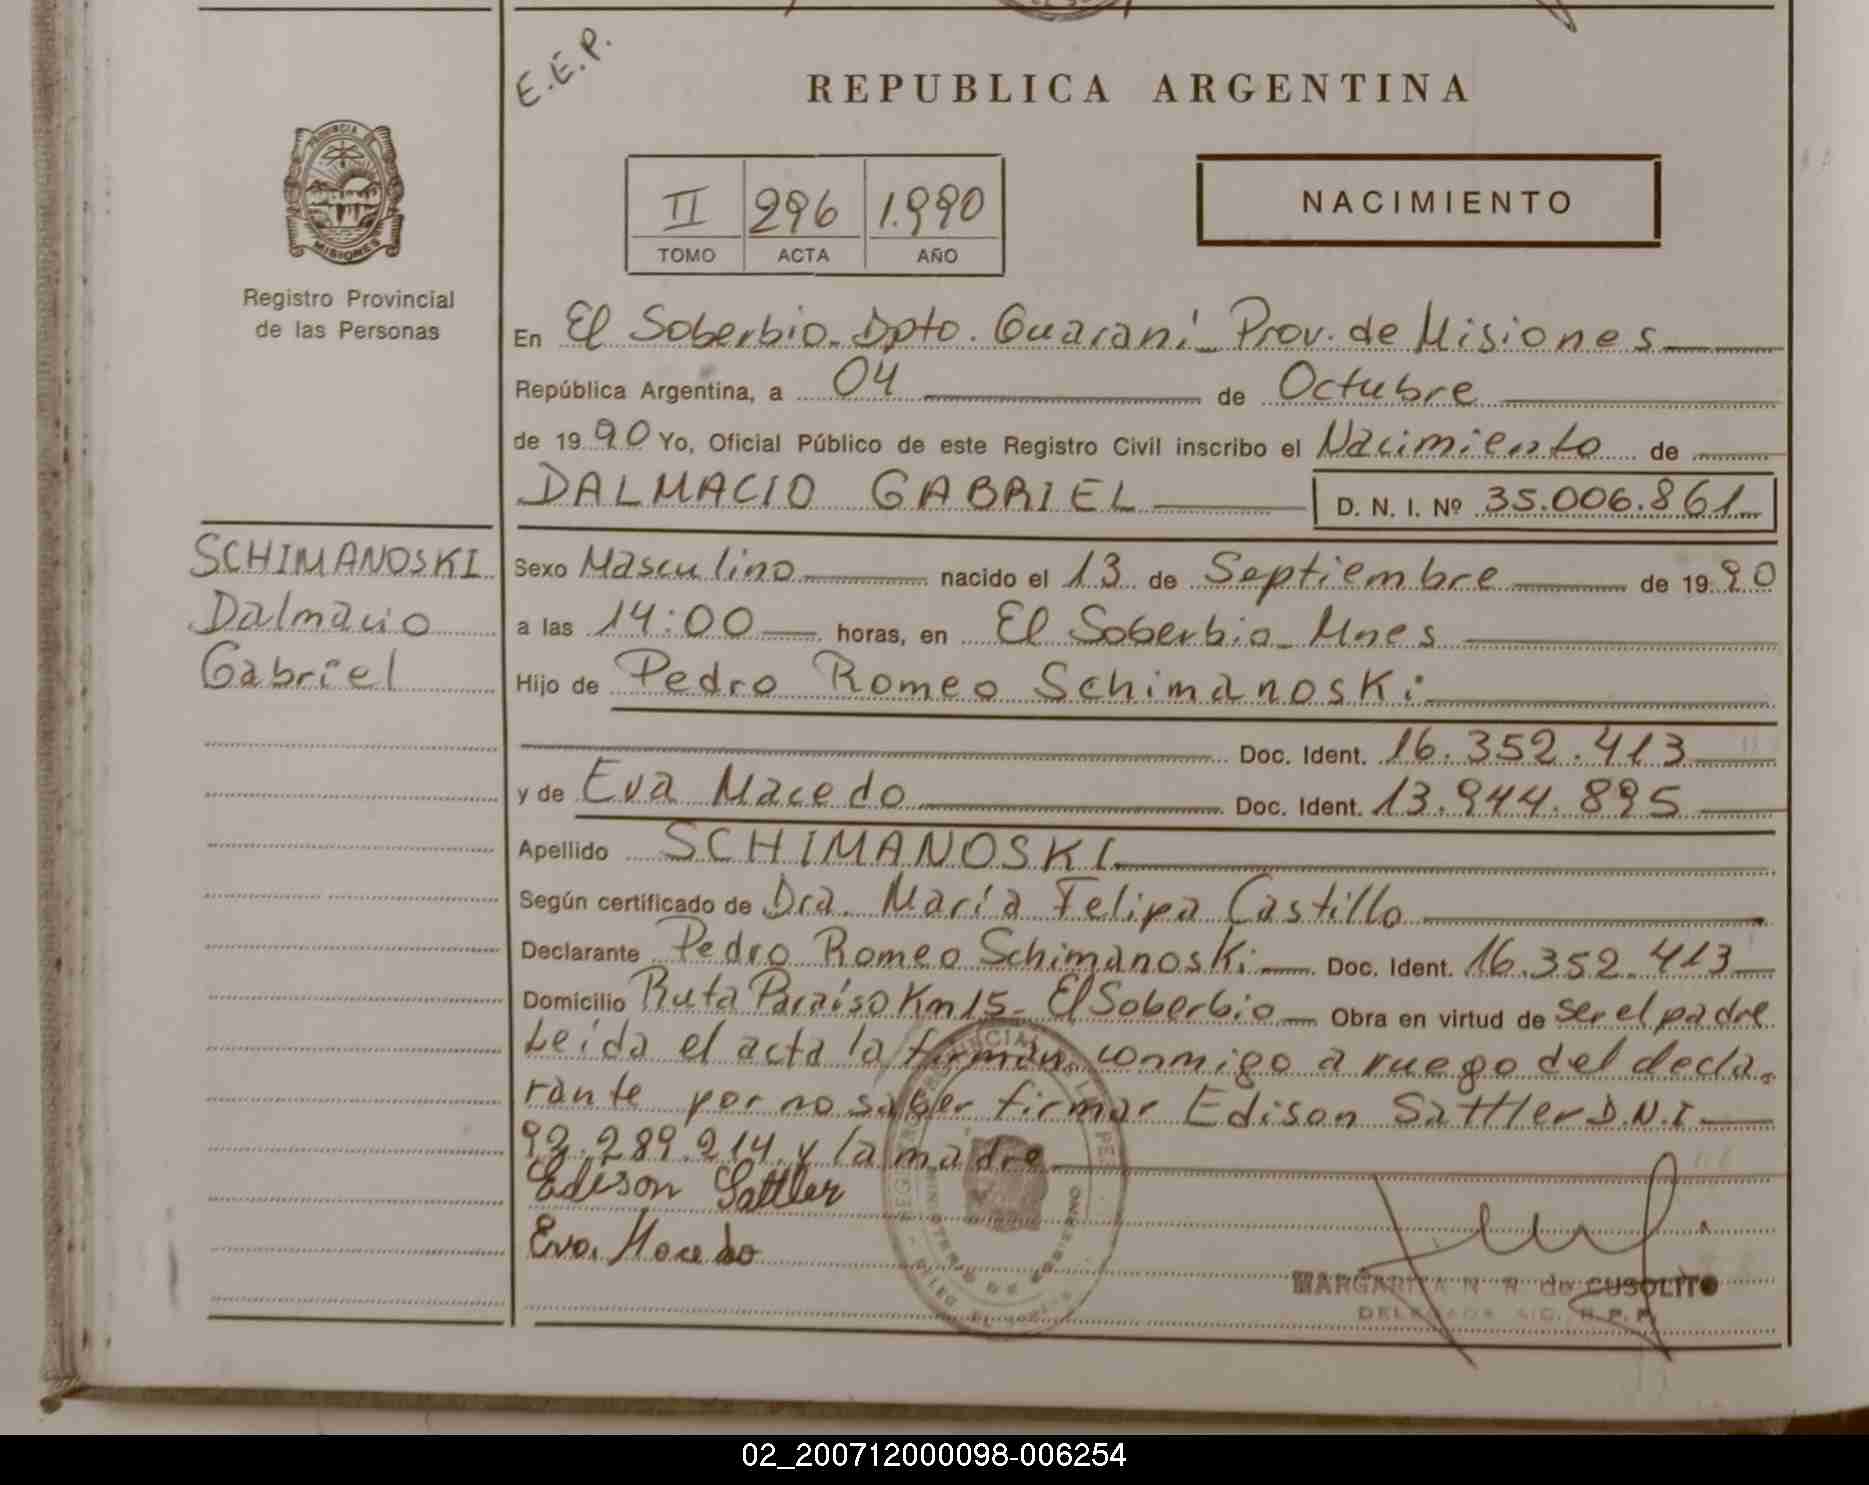 E.E.P.
REPUBLICA ARGENTINA
PROVINCIA DE
MISIONES
Registro Provincial
de las Personas
II 296 1.990
TOMO ACTA AÑO
NACIMIENTO
En El Soberbio - Dpto. Guaraní - Prov. de Misiones
República Argentina, a 04 de Octubre
de 1990 Yo, Oficial Público de este Registro Civil inscribo el Nacimiento de
DALMACIO GABRIEL D. N. I. Nº 35.006.861
SCHIMANOSKI
Dalmacio
Gabriel
Sexo Masculino nacido el 13 de Septiembre de 1990
a las 14:00 horas, en El Soberbio - Mnes
Hijo de Pedro Romeo Schimanoski
Doc. Ident. 16.352.413
y de Eva Macedo Doc. Ident. 13.944.895
Apellido SCHIMANOSKI
Según certificado de Dra. María Felipa Castillo
Declarante Pedro Romeo Schimanoski Doc. Ident. 16.352.413
Domicilio Ruta Paraíso Km 15 - El Soberbio Obra en virtud de ser el padre
Leída el acta la firman conmigo a ruego del decla-
rante por no saber firmar Edison Sattler D.N.I
92.289.214 y la madre
Edison Sattler
Eva Macedo
MARGARITA N. R. de CUSOLITO
DELEGADA R.P.P.
02_200712000098-006254